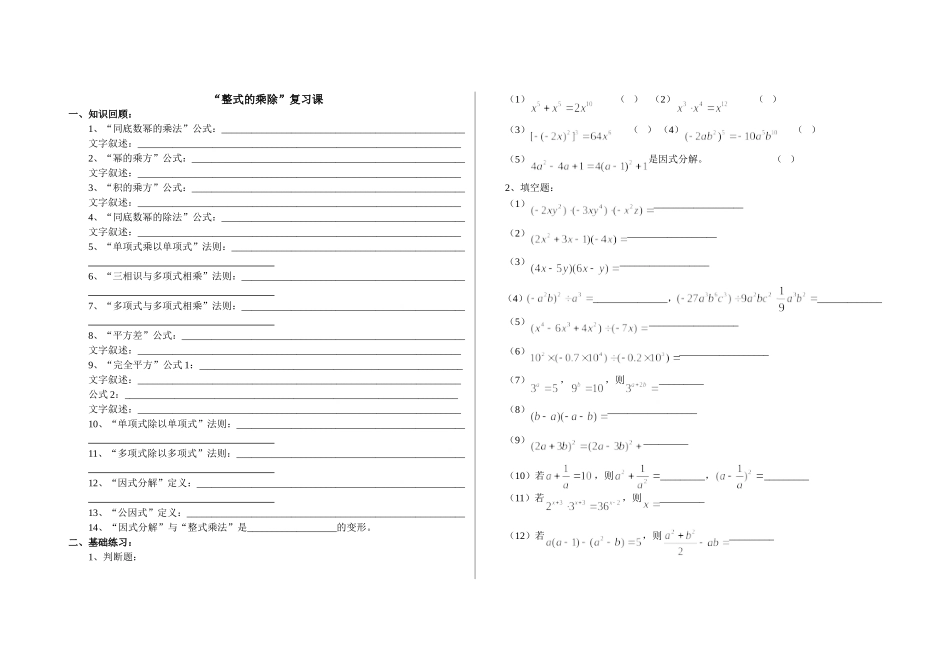 “整式的乘除”复习课
一、知识回顾：
1、“同底数幂的乘法”公式：____________
文字叙述：____________
2、“幂的乘方”公式：____________
文字叙述：____________
3、“积的乘方”公式：____________
文字叙述：____________
4、“同底数幂的除法”公式：____________
文字叙述：____________
5、“单项式乘以单项式”法则：____________
____________
6、“三相识与多项式相乘”法则：____________
____________
7、“多项式与多项式相乘”法则：____________
____________
8、“平方差”公式：____________
文字叙述：____________
9、“完全平方”公式 1：____________
文字叙述：____________
公式 2：____________
文字叙述：____________
10、“单项式除以单项式”法则：____________
____________
11、“多项式除以多项式”法则：____________
____________
12、“因式分解”定义：____________
____________
13、“公因式”定义：____________
14、“因式分解”与“整式乘法”是____________的变形。
二、基础练习：
1、判断题：
（1）x⁵ + x⁵ = 2x¹⁰ （ ）（2）x³·x⁴ = x¹² （ ）
（3）[-(-2x)²]³ = 64x⁶ （ ）（4）(-2ab²)⁵ = -10a⁵b¹⁰ （ ）
（5）4a² - 4a + 1 = 4(a - 1)² + 1是因式分解。 （ ）
2、填空题：
（1）(-2xy²)·(-3xy⁴)·(-x²z) = ____________
（2）(2x² + 3x - 1)(-4x) = ____________
（3）(4x - 5y)(6x - y) = ____________
（4）(-a²b)² ÷ a³ = ____________，(-27a³b⁶c³) ÷ 9a²bc²·1/9 a³b² = ____________
（5）(x⁴ - 6x³ + 4x²) ÷ (-7x) = ____________
（6）10² × (-0.7×10⁴) ÷ (-0.2×10³) = ____________
（7）3ᵃ = 5，9ᵇ = 10，则3ᵃ⁺²ᵇ = ________
（8）(b - a)(-a - b) = ____________
（9）(2a + 3b)² = (2a - 3b)² + ________
（10）若a + 1/a = 10，则a² + 1/a² = ________，(a - 1/a)² = ________
（11）若2ˣ⁺³·3ˣ⁺³ = 36ˣ⁻²，则x = ________
（12）若a(a - 1) - (a² - b) = 5，则(a² + b²)/2 - ab = ________